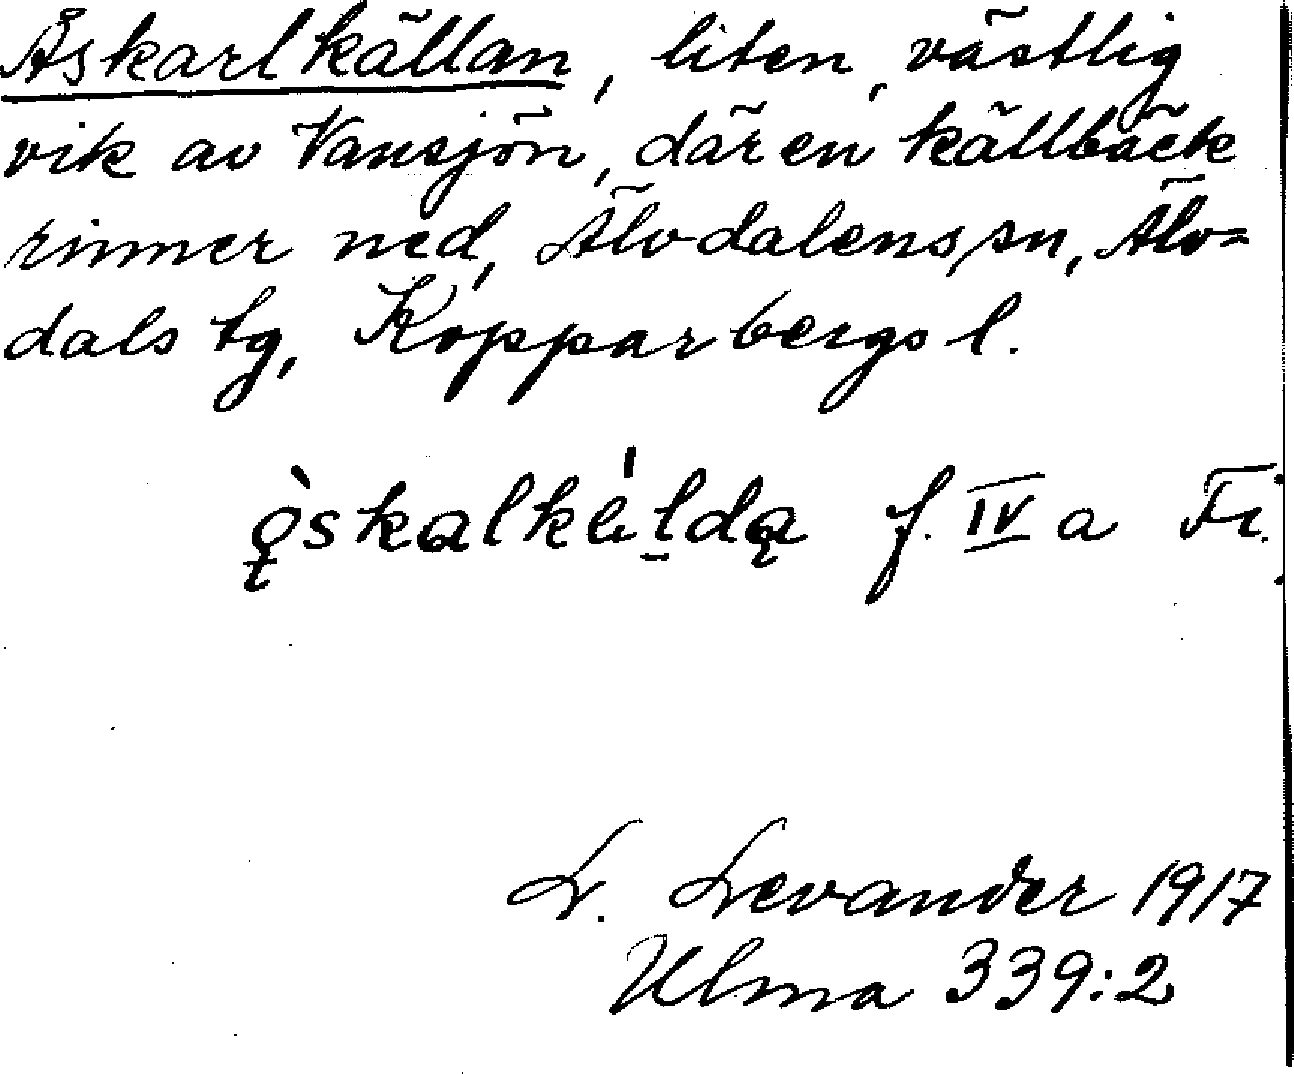 Åskarlkällan, liten, västlig
vik av Vansjön, där en källbäck
rinner ned, Älvdalens sn, Älv=
dals tg, Kopparbergs l.
f. IV a
L. Levander 1917
Ulma 339:2